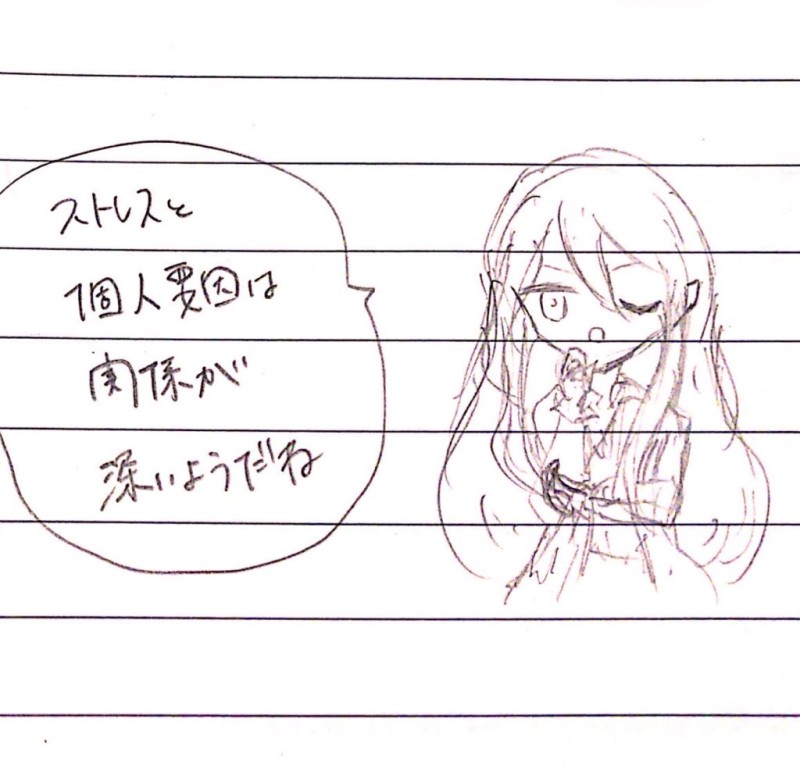 ストレスと
個人要因は
関係が
深いようだね